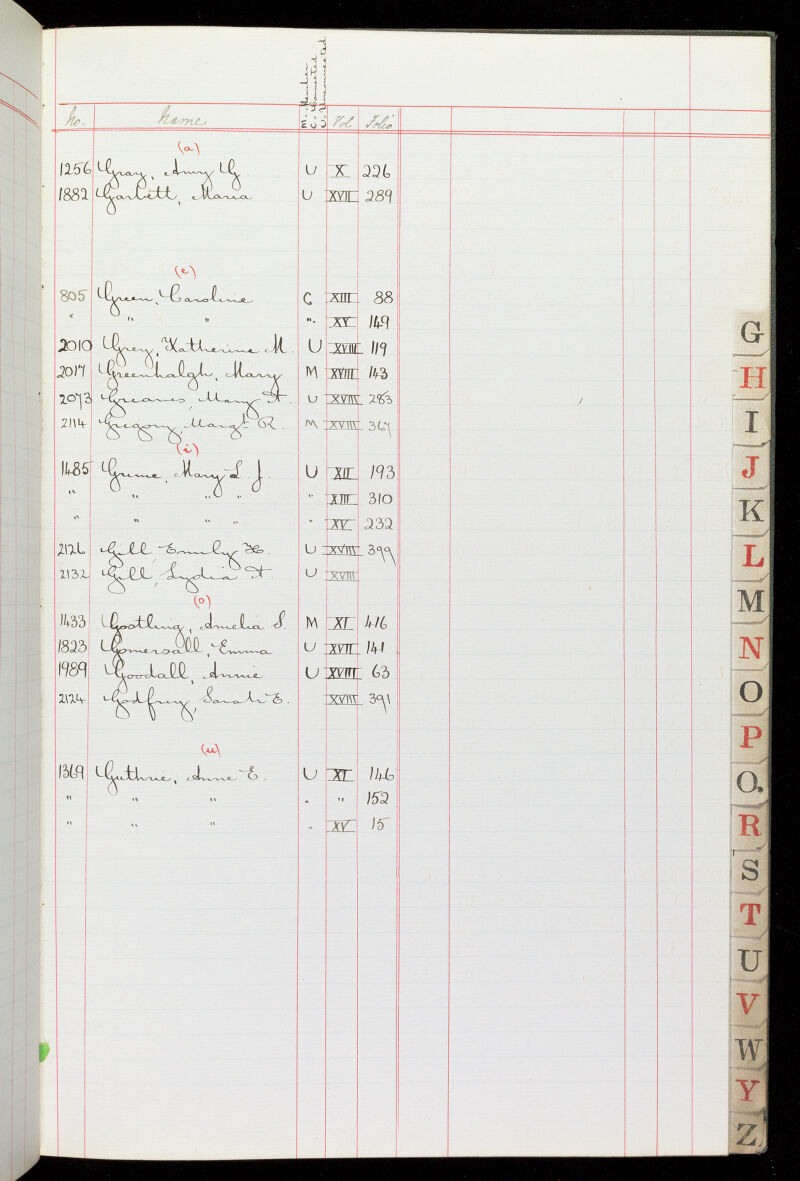 M. Member
C. Connected
U. Unconnected
No. Name Vol Folio
(a)
1256 Gray, Amy G U X 226
1882 Garbett, Maria U XVII 289
(e)
805 Green, Caroline C XIII 88
" " " " XV 149
2010 Grey, Katherine M. U XVIII 119
2017 Greenhalgh, Mary M XVIII 143
2073 Greaves, Mary A. U XVIII 283
2114 Gregory, Margt. R. M XVIII 367
(i)
1485 Grime, Mary L. J. U XII 193
" " " " " XIII 310
" " " " " XV 232
2126 Gill, Emily H. U XVIII 399
2132 Gill, Lydia A. U XVIII
(o)
1433 Gostling, Amelia S. M XI 416
1823 Gomersall, Emma U XVII 141
1989 Goodall, Annie U XVIII 63
2124 Godfrey, Sarah E. XVIII 391
(u)
1369 Guthrie, Anne E. U XI 146
" " " " " 152
" " " " XV 15
G
H
I
J
K
L
M
N
O
P
Q
R
S
T
U
V
W
Y
Z